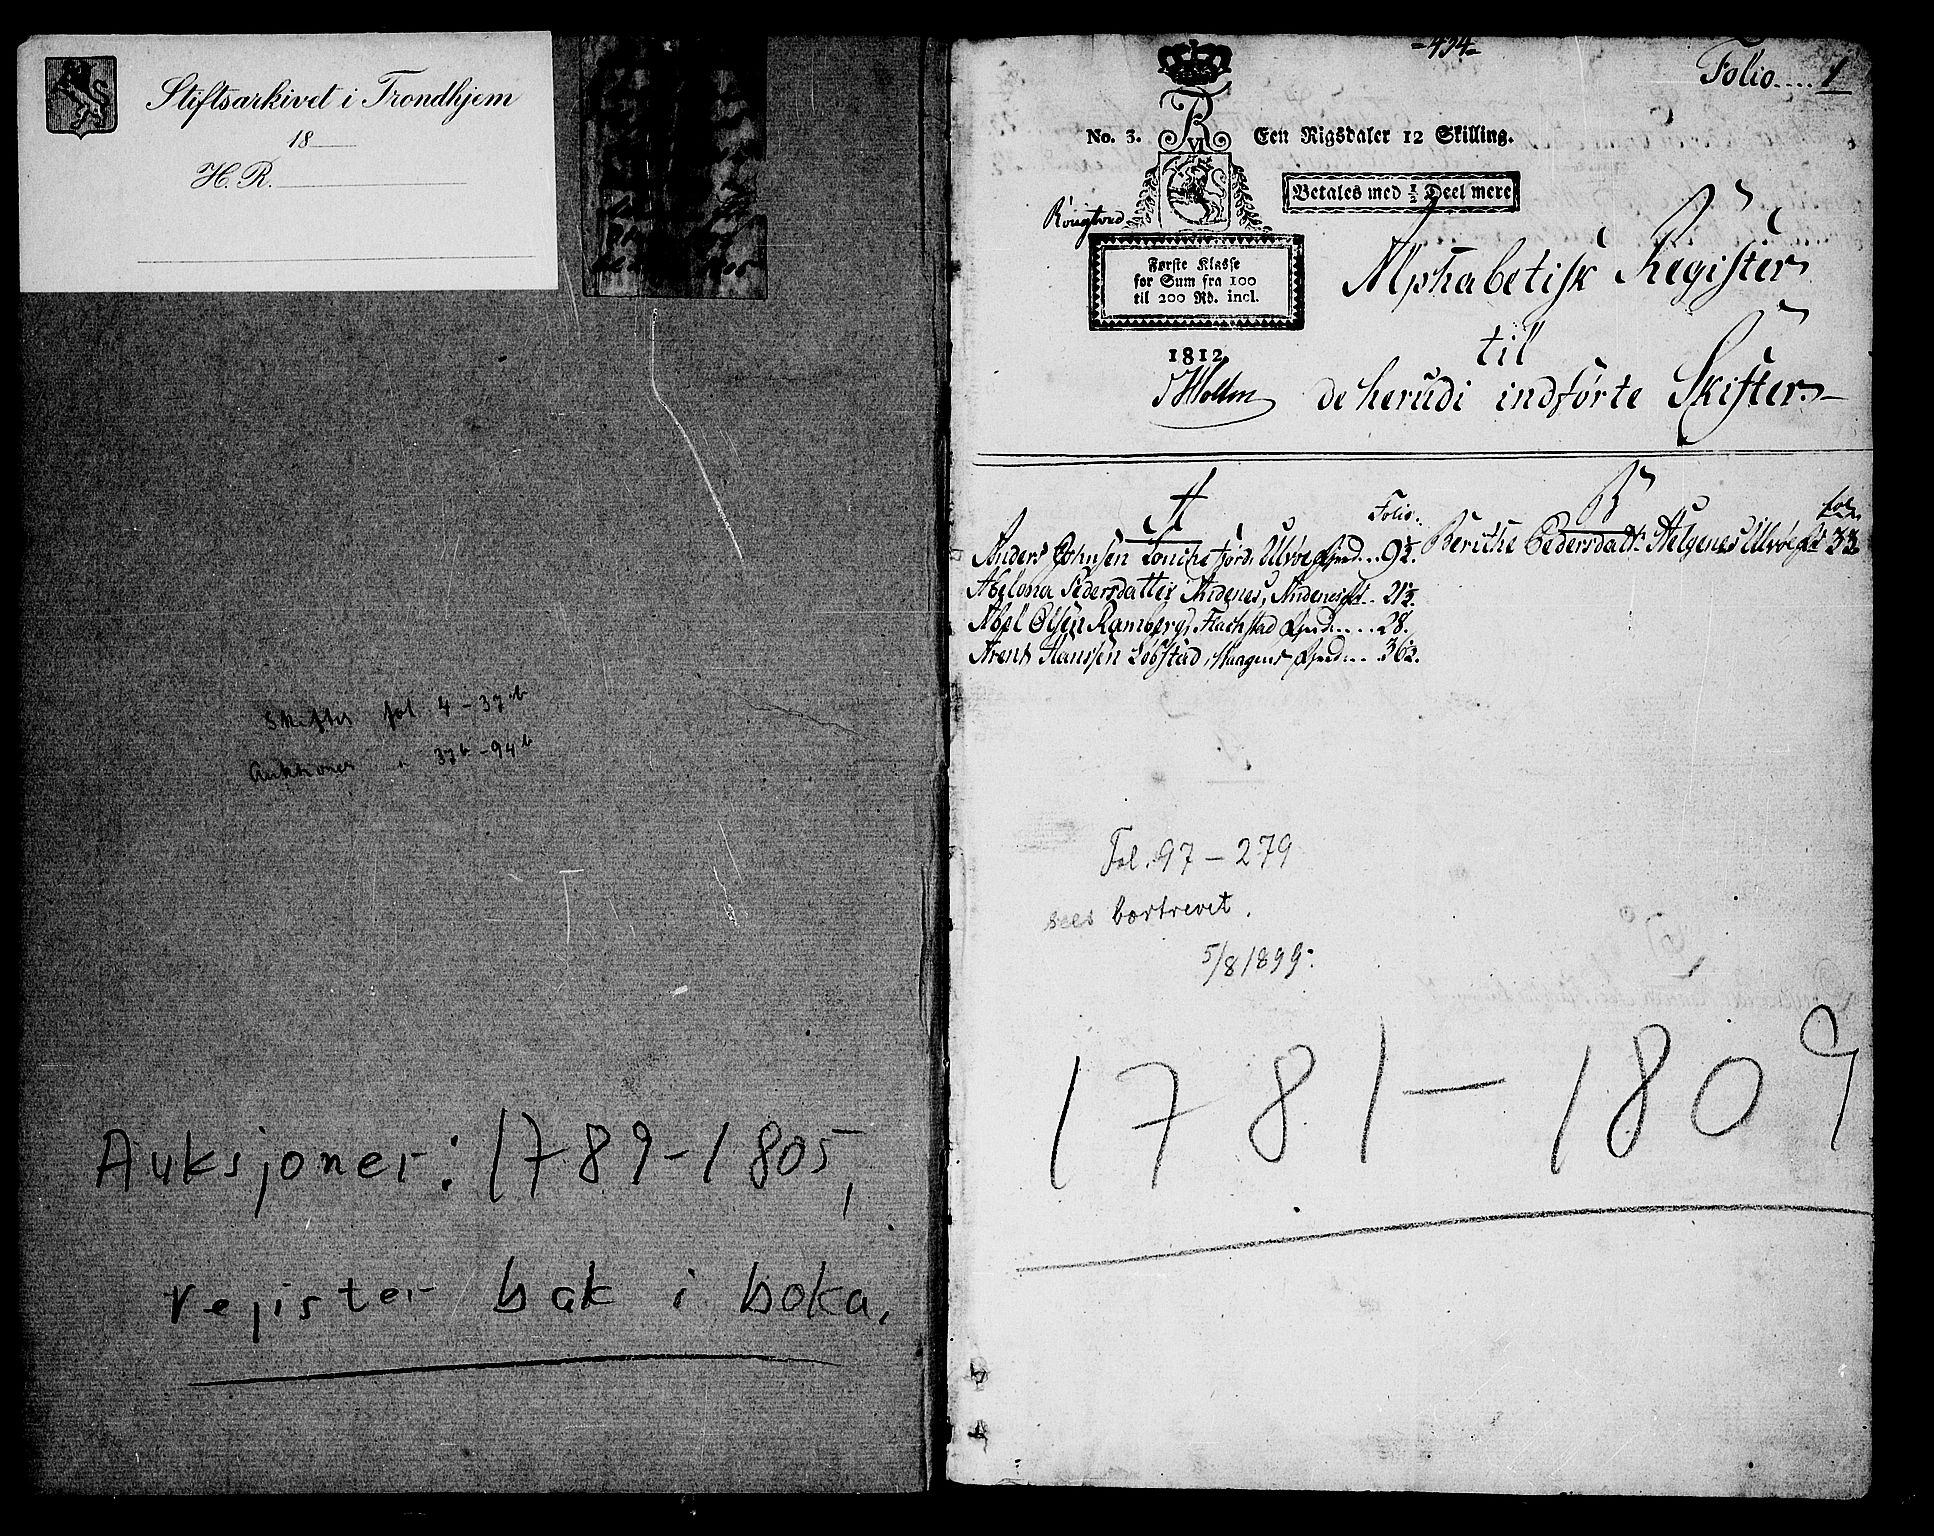 Stiftsarkivet i Trondhjem
18
H. R.
Skifter fol. 4 - 37 b
Auktioner " 37 b - 94 b
Auksjoner: 1789-1805,
register bak i boka.
-494-
Folio.... 1
No. 3. Een Rigsdaler 12 Skilling.
VI
Betales med 1/2 Deel mere
Første Klasse
for Sum fra 100
til 200 Rd. incl.
1812
Alphabetisk Register
til
de herudi indførte Skifter
A
Folio.
Anders Johnsen Fjord.
Abelona Pedersdatter Andenes, Andenes 21
Abel Olsen Ramberg, Hachstad 28.
Arent Hanssen Bøgstad, 36
B
fol.
Berithe Pedersdatr. Helgenes 33
Fol. 97 - 279
sees bortrevet.
5/8 1899.
1781 - 1809